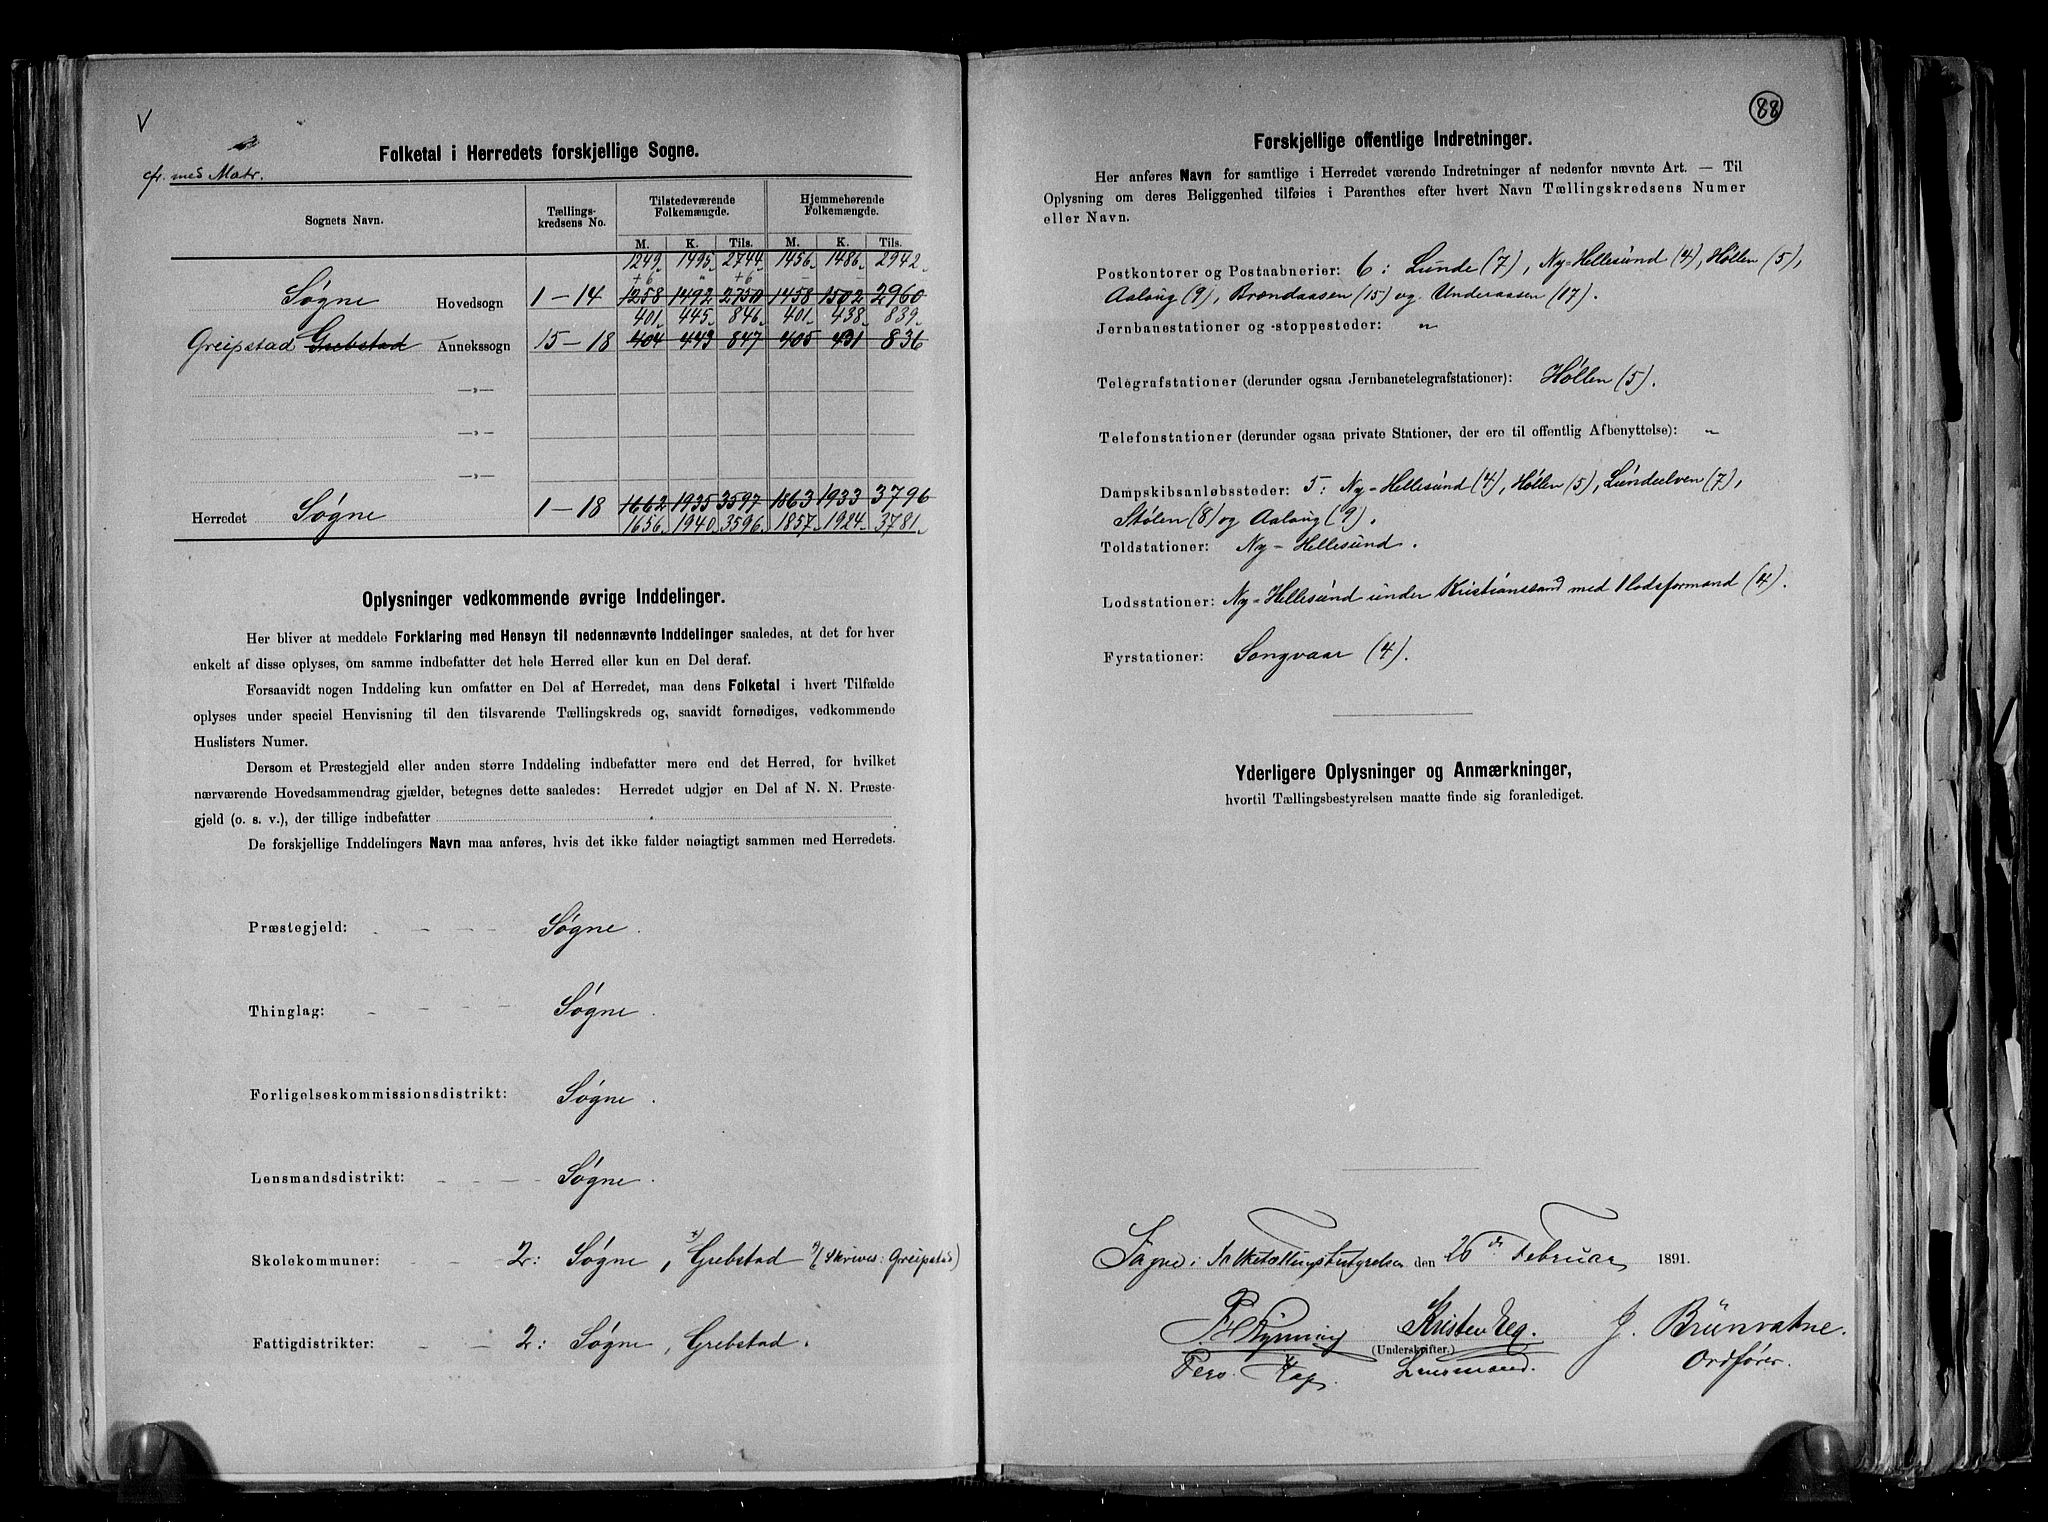 V
cfr. med Matr.
Folketal i Herredets forskjellige Sogne.
Sognets Navn.
Tællings-
kredsens No.
Tilstedeværende
Folkemængde.
Hjemmehørende
Folkemængde.
M. K. Tils. M. K. Tils.
1249. 1495. 2744. 1456. 1486. 2942.
+6 " +6 – –
Søgne Hovedsogn 1–14 1258 1492 2750 1458 1502 2960
401. 445. 846. 401. 438. 839.
Greipstad Grebstad Annekssogn 15–18 404 443 847 405 431 836
—»—
—»—
—»—
Herredet Søgne 1–18 1662 1935 3597 1863 1933 3796
1656. 1940. 3596. 1857. 1924. 3781.
Oplysninger vedkommende øvrige Inddelinger.
Her bliver at meddele Forklaring med Hensyn til nedennævnte Inddelinger saaledes, at det for hver
enkelt af disse oplyses, om samme indbefatter det hele Herred eller kun en Del deraf.
Forsaavidt nogen Inddeling kun omfatter en Del af Herredet, maa dens Folketal i hvert Tilfælde
oplyses under speciel Henvisning til den tilsvarende Tællingskreds og, saavidt fornødiges, vedkommende
Huslisters Numer.
Dersom et Præstegjeld eller anden større Inddeling indbefatter mere end det Herred, for hvilket
nærværende Hovedsammendrag gjælder, betegnes dette saaledes: Herredet udgjør en Del af N. N. Præste-
gjeld (o. s. v.), der tillige indbefatter
De forskjellige Inddelingers Navn maa anføres, hvis det ikke falder nøiagtigt sammen med Herredets.
Præstegjeld: Søgne.
Thinglag: Søgne.
Forligelseskommissionsdistrikt: Søgne.
Lensmandsdistrikt: Søgne.
Skolekommuner: 2: Søgne, Grebstad (skrives: Greipstad)
Fattigdistrikter: 2: Søgne, Grebstad.
88
Forskjellige offentlige Indretninger.
Her anføres Navn for samtlige i Herredet værende Indretninger af nedenfor nævnte Art. — Til
Oplysning om deres Beliggenhed tilføies i Parenthes efter hvert Navn Tællingskredsens Numer
eller Navn.
Postkontorer og Postaabnerier: 6: Lunde (7), Ny-Hellesund (4), Høllen (5),
Aalaug (9), Brændaasen (15) og Underaasen (17).
Jernbanestationer og -stoppesteder: "
Telegrafstationer (derunder ogsaa Jernbanetelegrafstationer): Høllen (5).
Telefonstationer (derunder ogsaa private Stationer, der ere til offentlig Afbenyttelse): "
Dampskibsanløbssteder: 5: Ny-Hellesund (4), Høllen (5), Lundeelven (7),
Stølen (8) og Aalaug (9).
Toldstationer: Ny-Hellesund.
Lodsstationer: Ny-Hellesund under Kristianssand med 1 lodsformand (4).
Fyrstationer: Songvaar (4).
Yderligere Oplysninger og Anmærkninger,
hvortil Tællingsbestyrelsen maatte finde sig foranlediget.
Søgne i Folketællingsbestyrelsen den 26de Februar 1891.
Kristen Eeg. J. Brunvatne.
(Underskrifter.)
Pers. Kap. Lensmand. Ordfører.